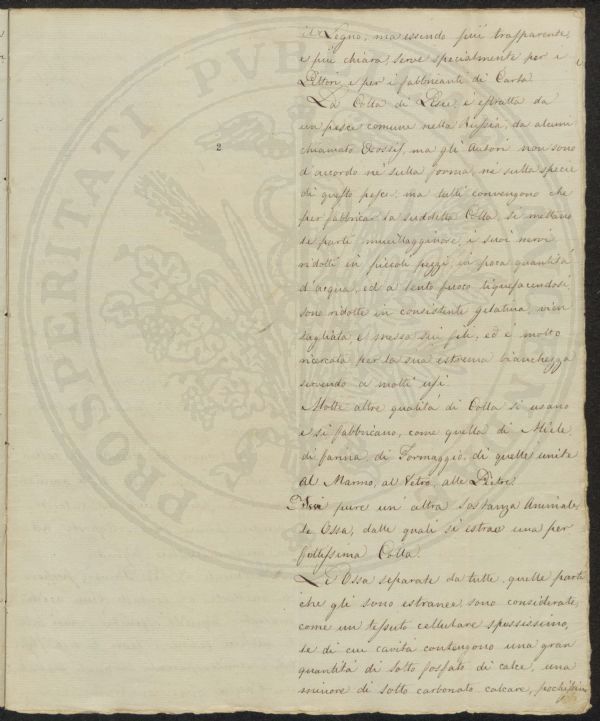 il Legno, ma essendo piú trasparente,
e piú chiara, serve specialmente per i
Pittori, e per i fabbricanti di Carta.
La Colla di Pesce, è estratta da
un pesce comune nella Russia, da alcuni
chiamato ma gli Autori non sono
d'accordo nè sulla forma, nè sulla specie
di questo pesce; ma tutti convengono che
per fabbricar la suddetta Colla, si mettano
le parti mucillagginose, i suoi nervi
ridotti in piccoli pezzi, in poca quantitá
d'acqua, ed a lento fuoco liquefacendosi
sono ridotte in consistente gelatina, vien
tagliata e messa sui fili, ed è molto
ricercata per la sua estrema bianchezza
servendo a molti usi.
Molte altre qualitá di Colla si usano
e si fabbricano, come quella di Miele
di farina, di Formaggio, di quelle unite
al Marmo, al Vetro, alle Pietre.
2
pure un'altra sostanza Animale,
le Ossa, dalle quali si estrae una per
fettissima Colla.
Le Ossa separate da tutte quelle parti
che gli sono estranee, sono considerate,
come un tessuto cellulare spessissimo,
le di cui cavitá contengono una gran
quantitá di sotto fosfato di calce, una
minore di sotto carbonato calcare,
PROSPERITATI PVBLICAE